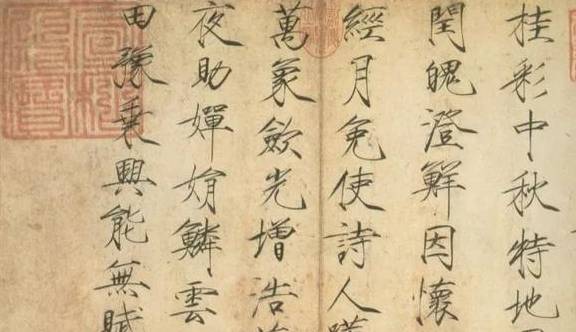 桂彩中秋特地
閏魄澄鮮因懷
經月免使詩人
萬象歛光增浩
夜助嬋娟鱗雲
田豫乗興能無賦